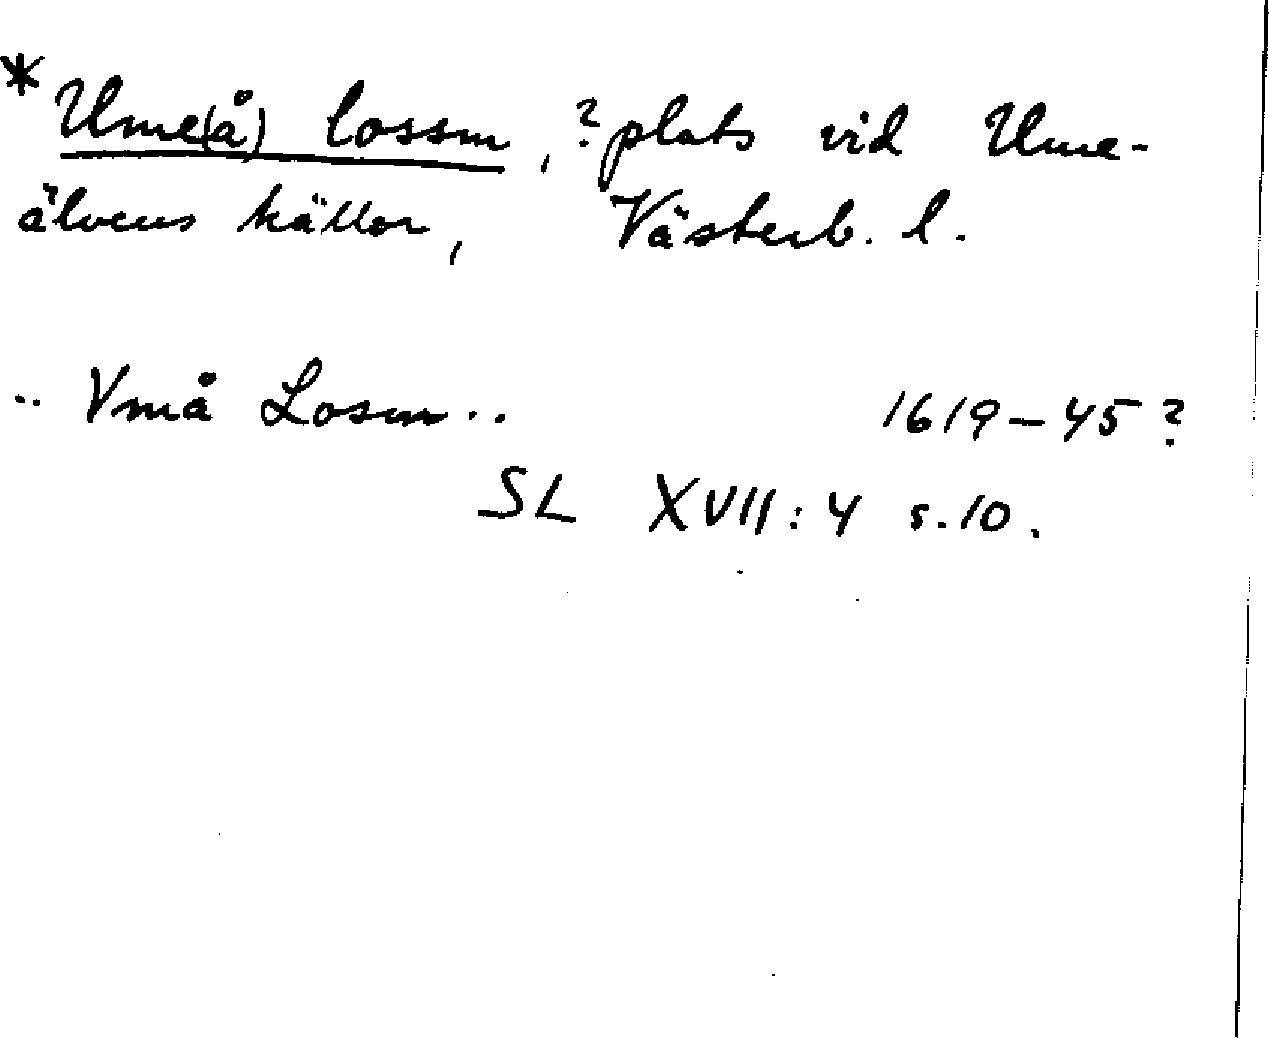 * Ume(å) lossm, ? plats vid Ume-
älvens källor, Västerb. l.
.. Vmå Losm..  1619–45?
SL XVII:4 s.10.